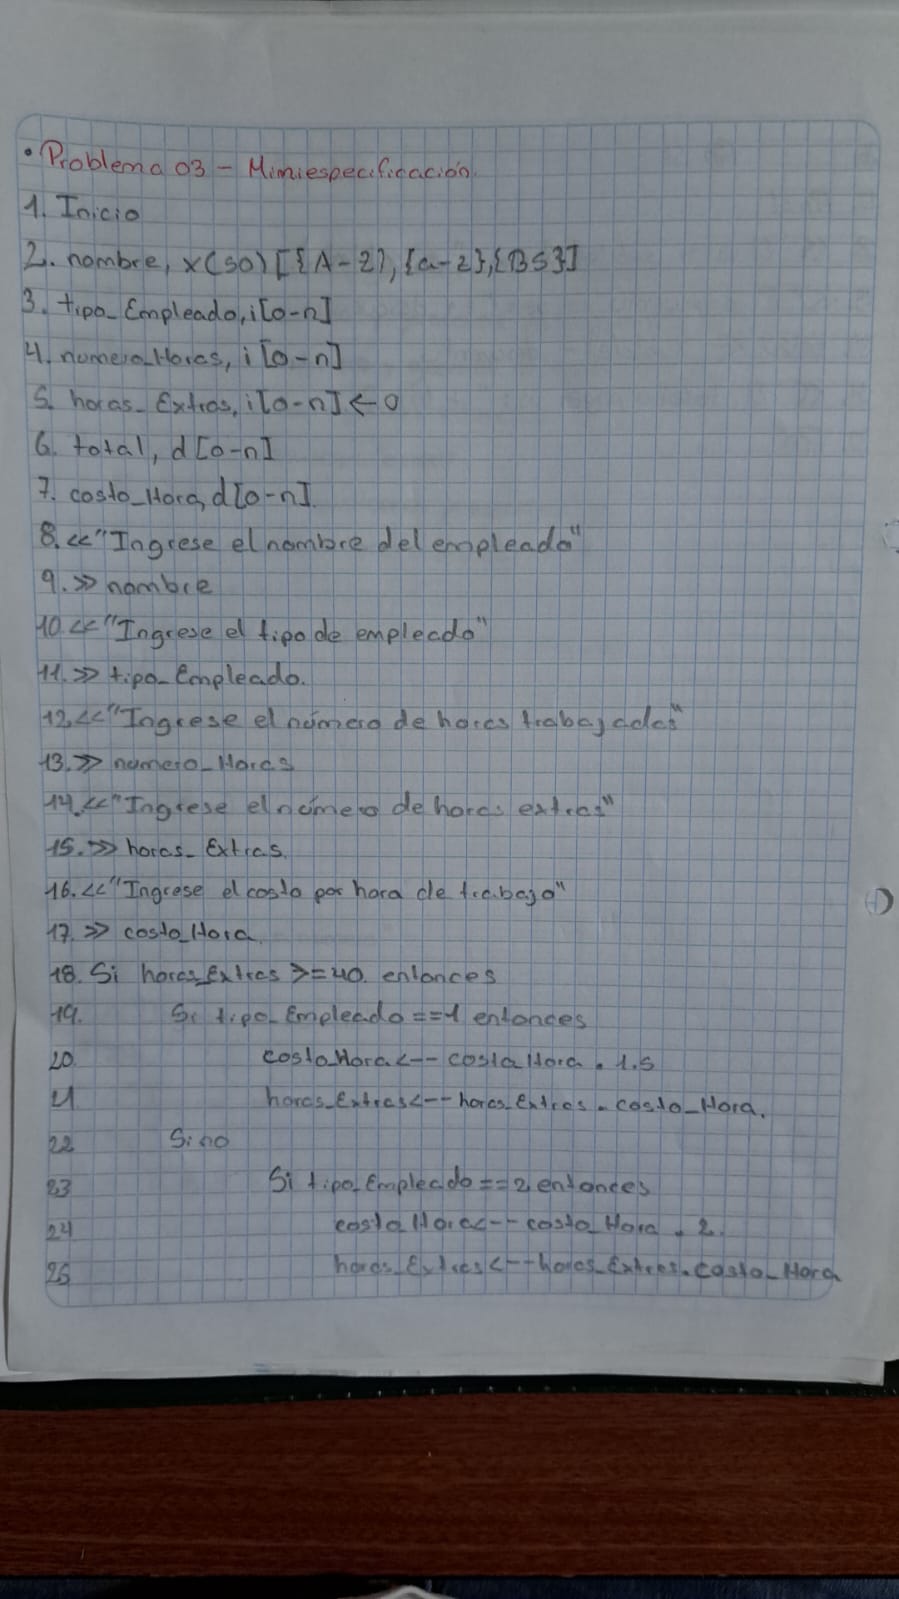 • Problema 03 - Miniespecificación.
1. Inicio
2. nombre, x(50)[{A-Z},{a-z},{BS}]
3. tipo_Empleado, i[0-n]
4. numero_Horas, i[0-n]
5. horas_Extras, i[0-n]<-0
6. total, d[0-n]
7. costo_Hora, d[0-n]
8. <<"Ingrese el nombre del empleado"
9. >> nombre
10. <<"Ingrese el tipo de empleado"
11. >> tipo_Empleado.
12. <<"Ingrese el número de horas trabajadas"
13. >> numero_Horas
14. <<"Ingrese el número de horas extras"
15. >> horas_Extras.
16. <<"Ingrese el costo por hora de trabajo"
17. >> costo_Hora.
18. Si horas_Extras >=40. entonces
19. Si tipo_Empleado ==1 entonces
20. costo_Hora <-- costo_Hora * 1.5
21 horas_Extras <-- horas_Extras * costo_Hora.
22 Sino
23 Si tipo_Empleado == 2 entonces
24 costo_Hora <-- costo_Hora * 2.
25 horas_Extras <-- horas_Extras * costo_Hora